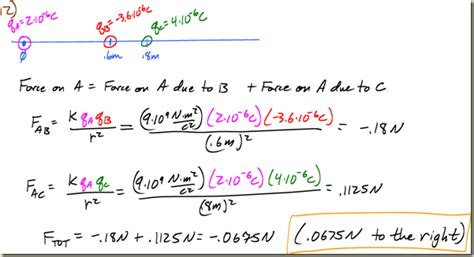 12) qA=2·10⁻⁶C qB=-3.6·10⁻⁶C qC=4·10⁻⁶C
0 .6m .8m
Force on A = Force on A due to B + Force on A due to C
F_AB = K qA qB / r² = (9·10⁹ N·m²/C²)(2·10⁻⁶C)(-3.6·10⁻⁶C) / (.6m)² = -.18N
F_AC = K qA qC / r² = (9·10⁹ N·m²/C²)(2·10⁻⁶C)(4·10⁻⁶C) / (.8m)² = .1125N
F_TOT = -.18N + .1125N = -.0675N (.0675N to the right)